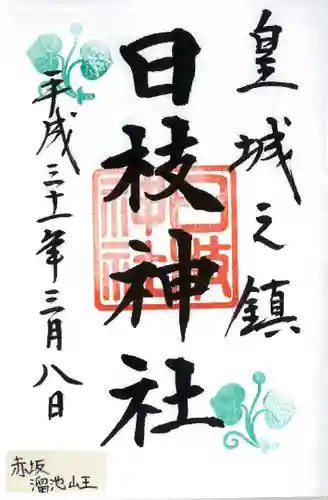 皇城之鎮
日枝神社
平成三十一年三月八日
日枝神社
赤坂
溜池山王